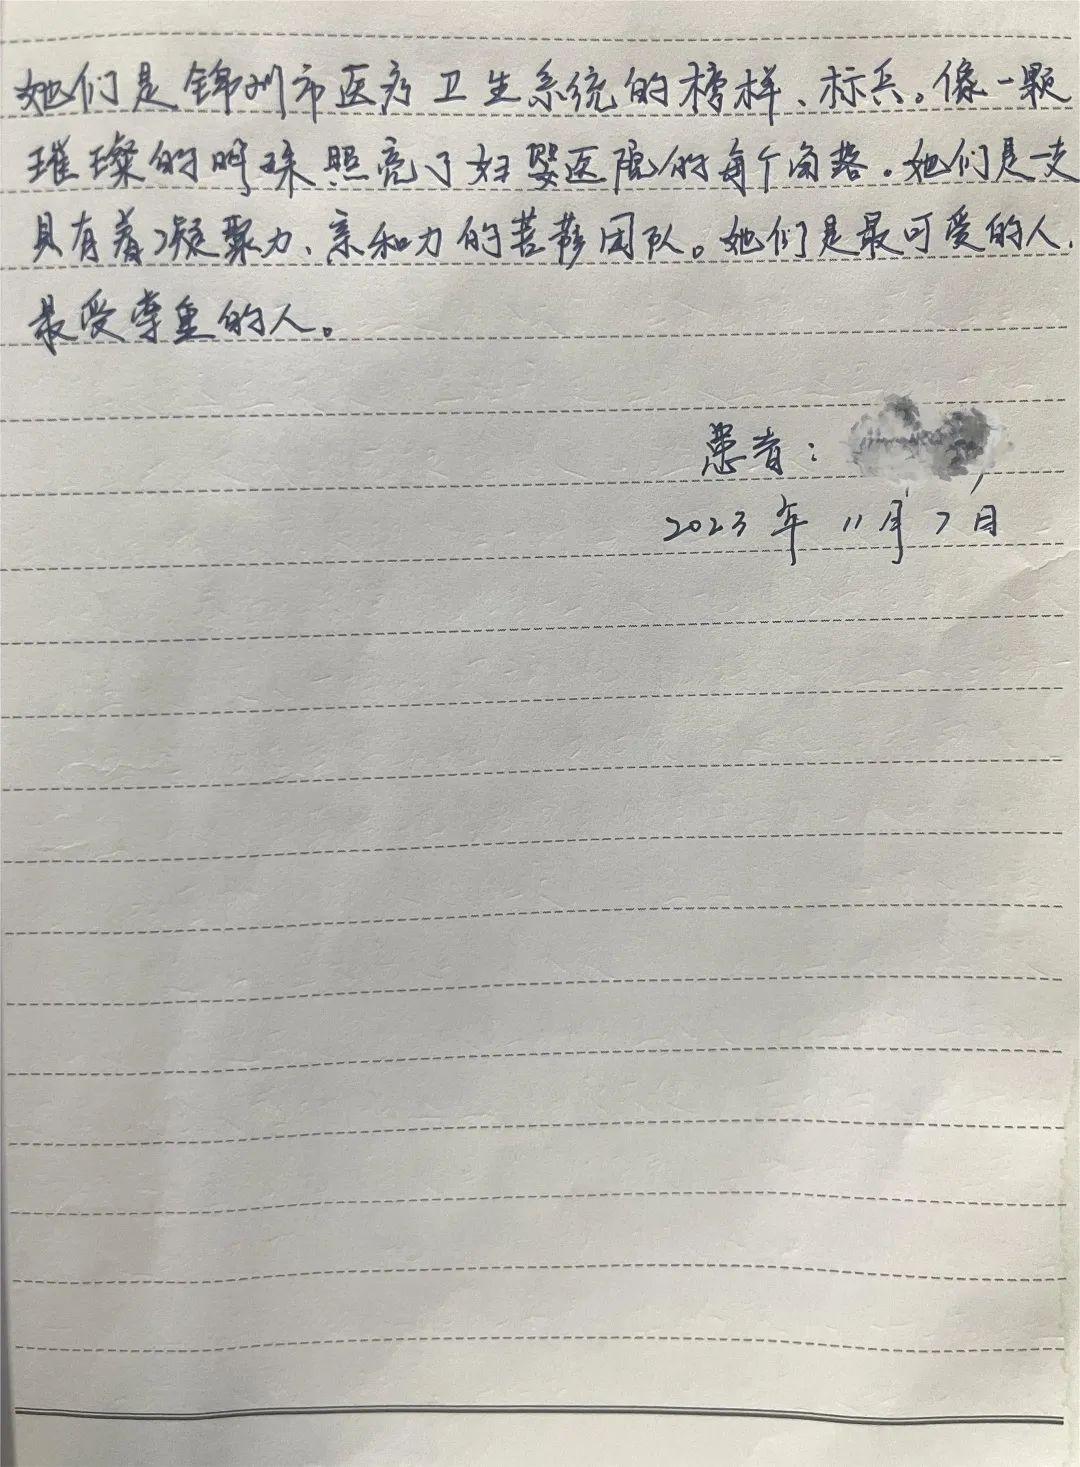 她们是锦州市医疗卫生系统的榜样、标兵。像一颗
璀璨的明珠照亮了妇婴医院的每个角落。她们是一支
具有着凝聚力、亲和力的菩萨团队。她们是最可爱的人,
最受尊重的人。
患者：
2023年11月7日